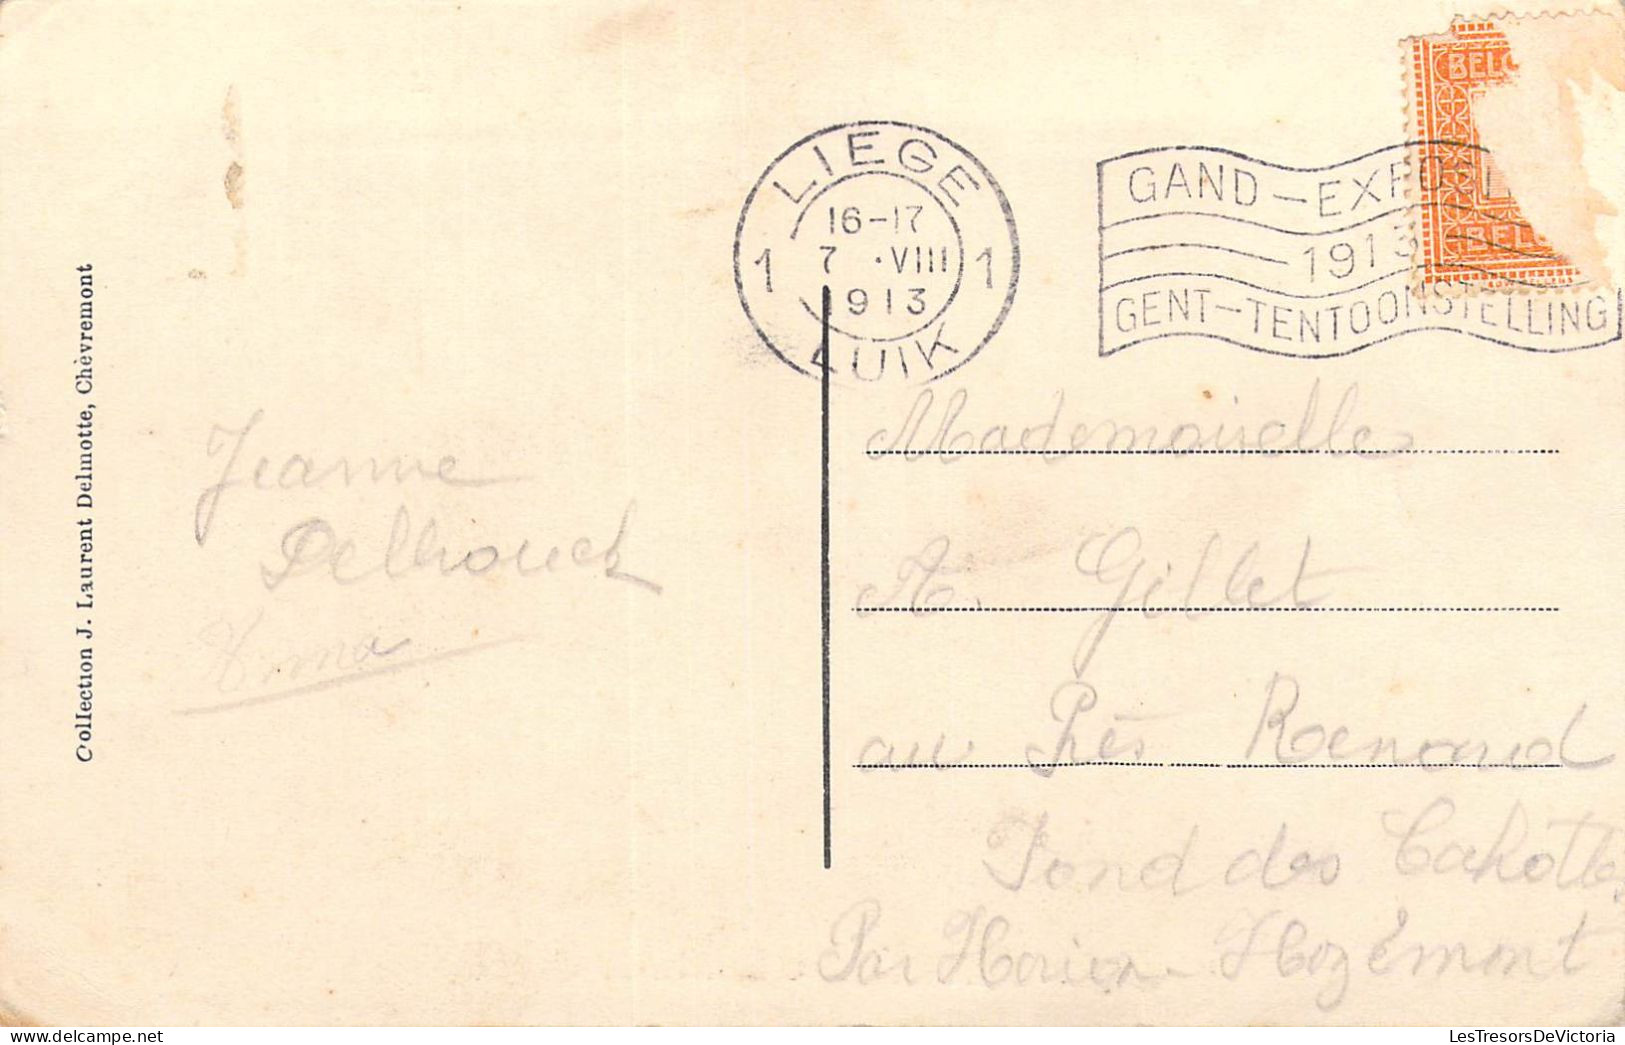 Collection J. Laurent Delmotte, Chèvremont
LIEGE
1 16-17 1
7 .VIII
1913
LUIK
GAND-EXPO
1913
GENT-TENTOONSTELLING
BELG
BELG
Jeanne
Delhouck
Irma
Mademoiselle
A. Gillet
au Prés Renard
Fond des Cahottes
Par Horion-Hozémont
LesTresorsDeVictoria